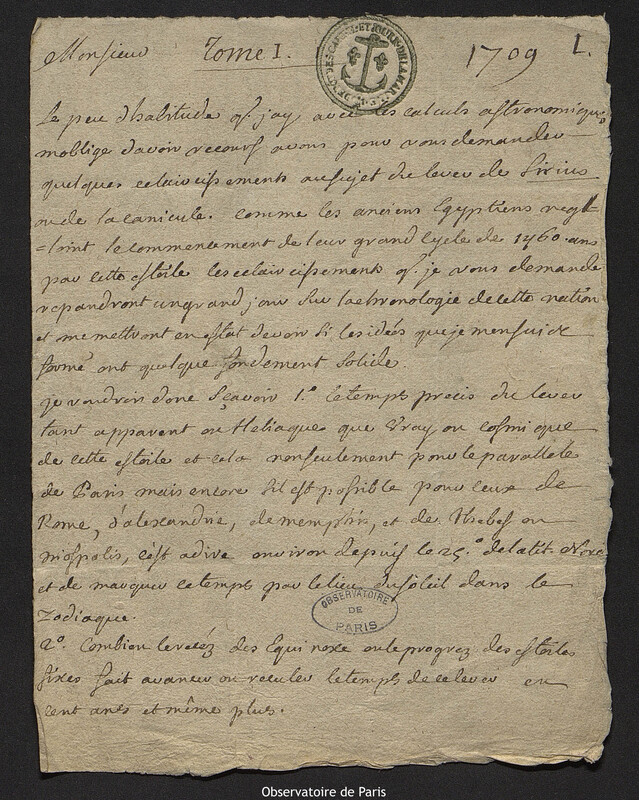 Monsieur Tome I. 1709 1.
Le peu d'habitude q. jay avec les calculs astronomiques
moblige davoir recours avous pour vous demander
quelques eclaircissements ausujet du lever de Sirius
oude la canicule. comme les anciens Egyptiens regl-
=loint le commencement de leur grand Cycle de 1460. ans
par cette estoile les eclaircissements q. je vous demande
repandront ungrand jour sur lachronologie decette nation
et me mettront enestat devoir si les idées que je men suis
formé ont quelque fondement solide.
je voudrois donc sçavoir 1.º le temps precis du lever
tant apparent ou Heliaque que vray ou cosmique
de cette estoile et cela nonseulement pour le parallele
de Paris mais encore sil est possible pour ceux de
Rome, d'alexandrie, de memphis, et de Thebes ou
Diospolis, c'est adire environ depuis le 25.º de latit. Nord
et de marquer cetemps par le lieu du soleil dans le
Zodiaque.
2º. Combien le recéz des Equinoxe oule progrez des estoiles
fixes fait avancer ou reculer le temps de ce lever en
cent anes et même plus.
OBSERVATOIRE
DE
PARIS
Observatoire de Paris